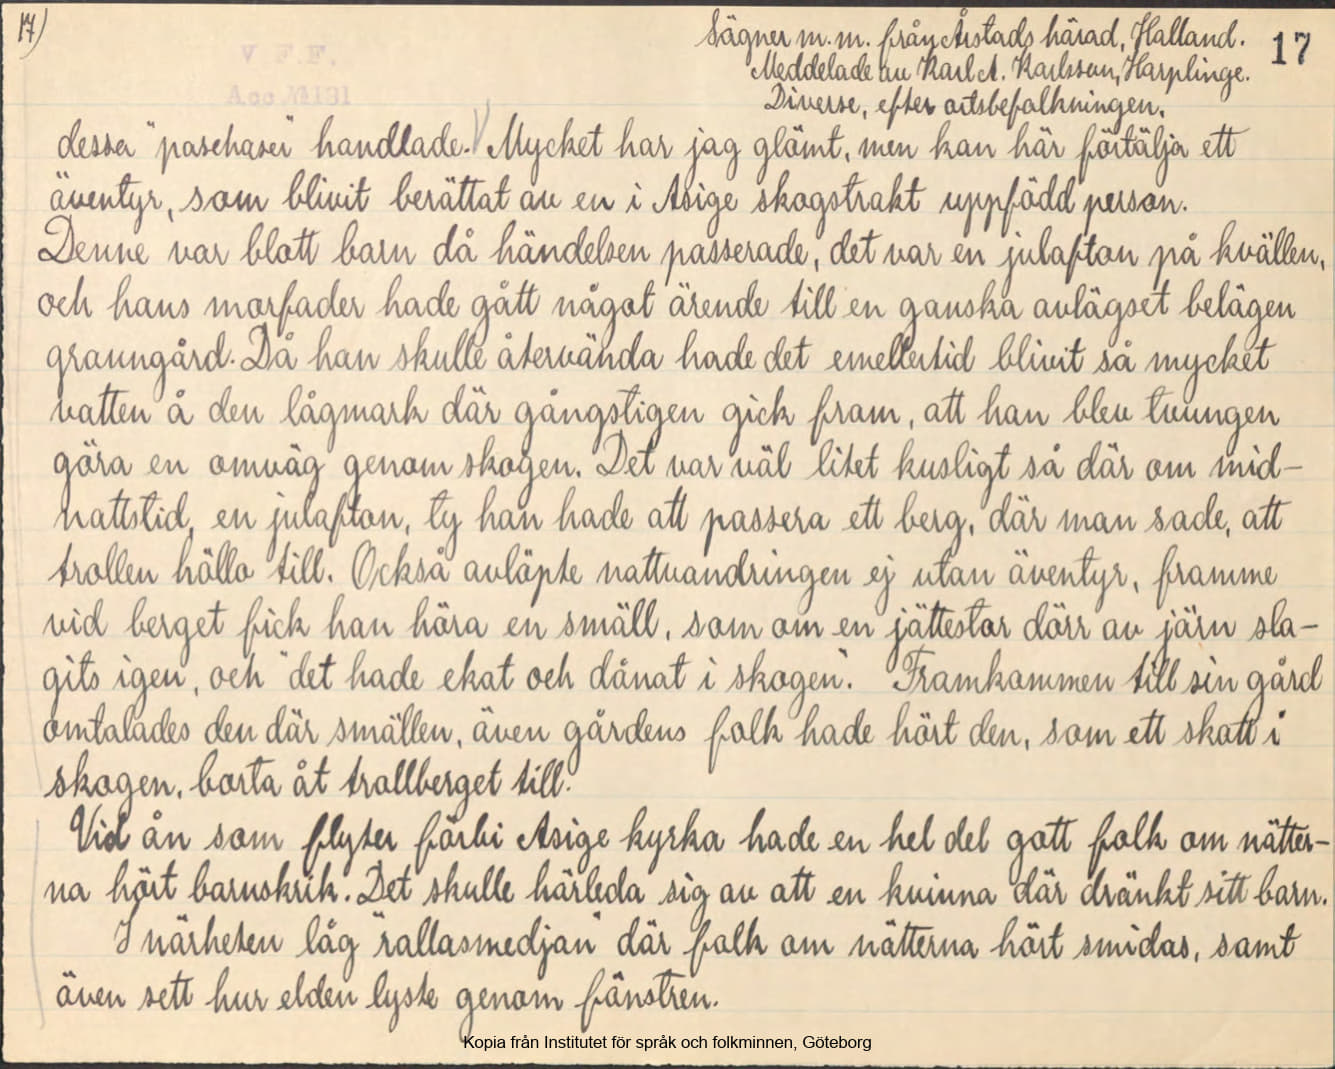 17)
Sägner m.m. från Årstads härad, Halland.
17
Meddelade av Karl A. Karlsson, Harplinge.
Diverse, efter ortsbefolkningen.
V F.F.
Acc № 131
dessa "paschaser" handlade. Mycket har jag glömt, men kan här förtälja ett
äventyr, som blivit berättat av en i Asige skogstrakt uppfödd person.
Denne var blott barn då händelsen passerade, det var en julafton på kvällen,
och hans morfader hade gått något ärende till en ganska avlägset belägen
granngård. Då han skulle återvända hade det emellertid blivit så mycket
vatten å den lågmark där gångstigen gick fram, att han blev tvungen
göra en omväg genom skogen. Det var väl litet kusligt så där om mid-
nattstid, en julafton, ty han hade att passera ett berg, där man sade, att
trollen höllo till. Också avlöpte nattvandringen ej utan äventyr, framme
vid berget fick han höra en smäll, som om en jättestor dörr av järn sla-
gits igen, och "det hade ekat och dånat i skogen". Framkommen till sin gård
omtalades den där smällen, även gårdens folk hade hört den, som ett skott i
skogen, borta åt trollberget till.
Vid ån som flyter förbi Asige kyrka hade en hel del gott folk om nätter-
na hört barnskrik. Det skulle härleda sig av att en kvinna där dränkt sitt barn.
I närheten låg "rallasmedjan" där folk om nätterna hört smidas, samt
även sett hur elden lyste genom fönstren.
Kopia från Institutet för språk och folkminnen, Göteborg